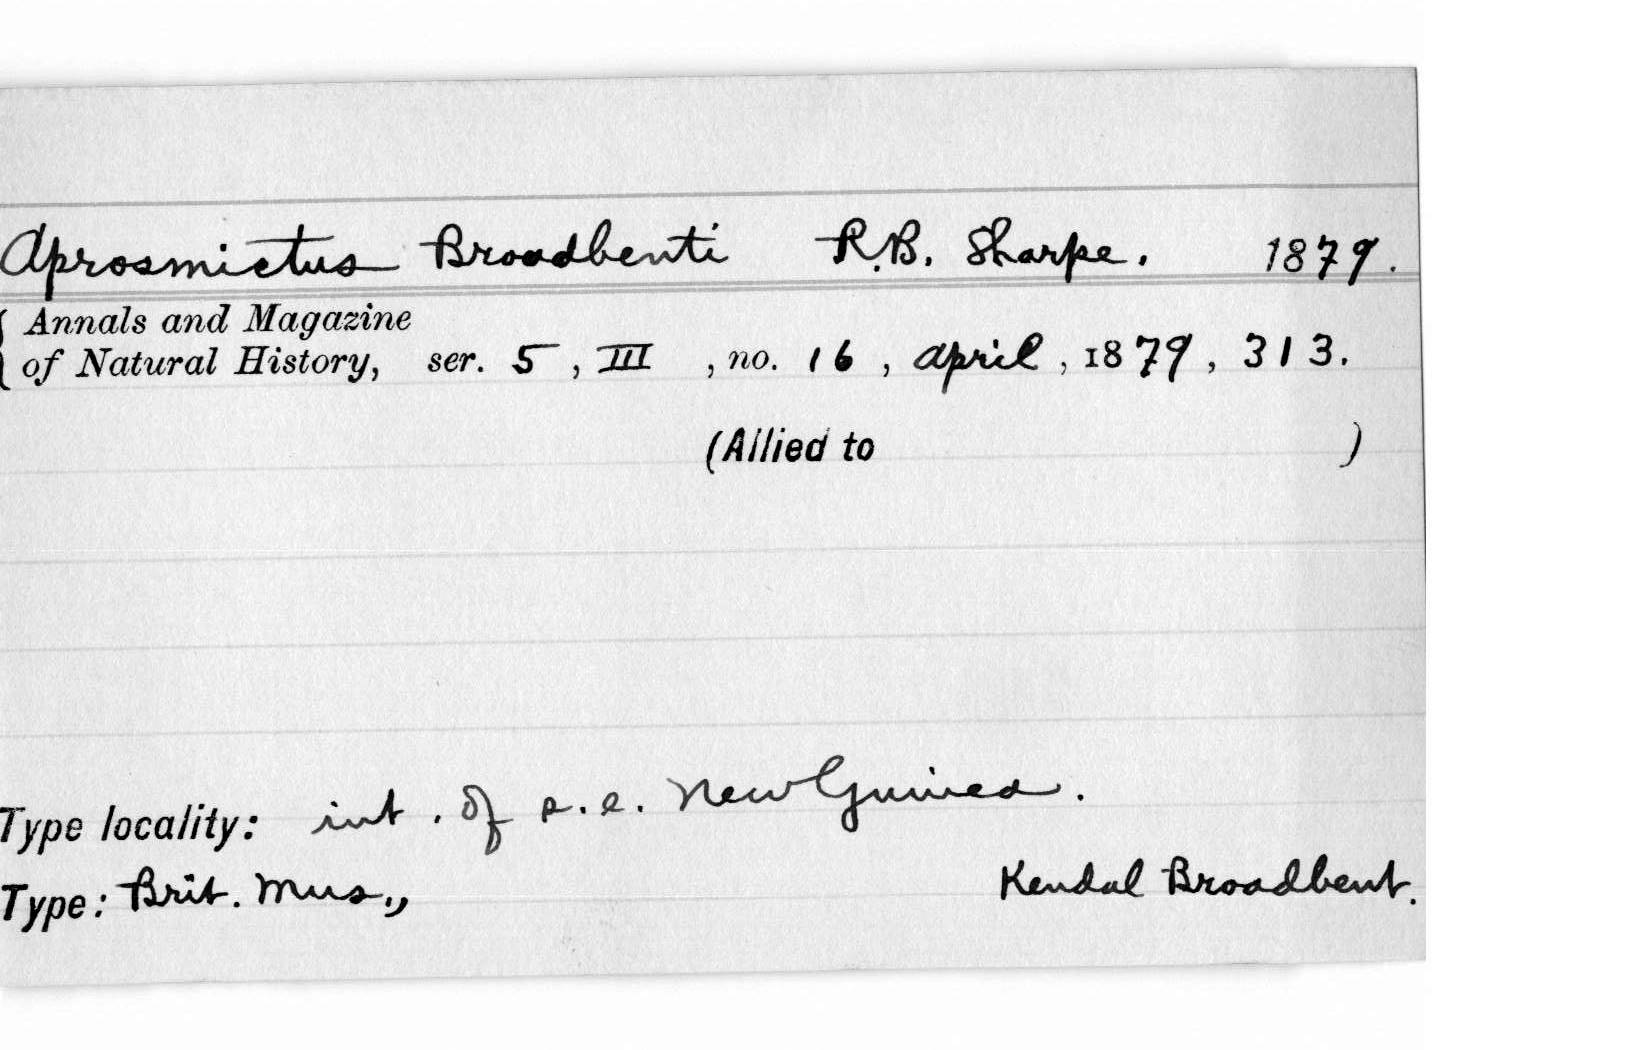 Aprosmictus Broadbenti R.B. Sharpe. 1879.
{ Annals and Magazine
of Natural History, ser. 5, III, no. 16, April, 1879, 313.
(Allied to )
Type locality: int. of s.e. New Guinea.
Type: Brit. Mus., Kendal Broadbent.